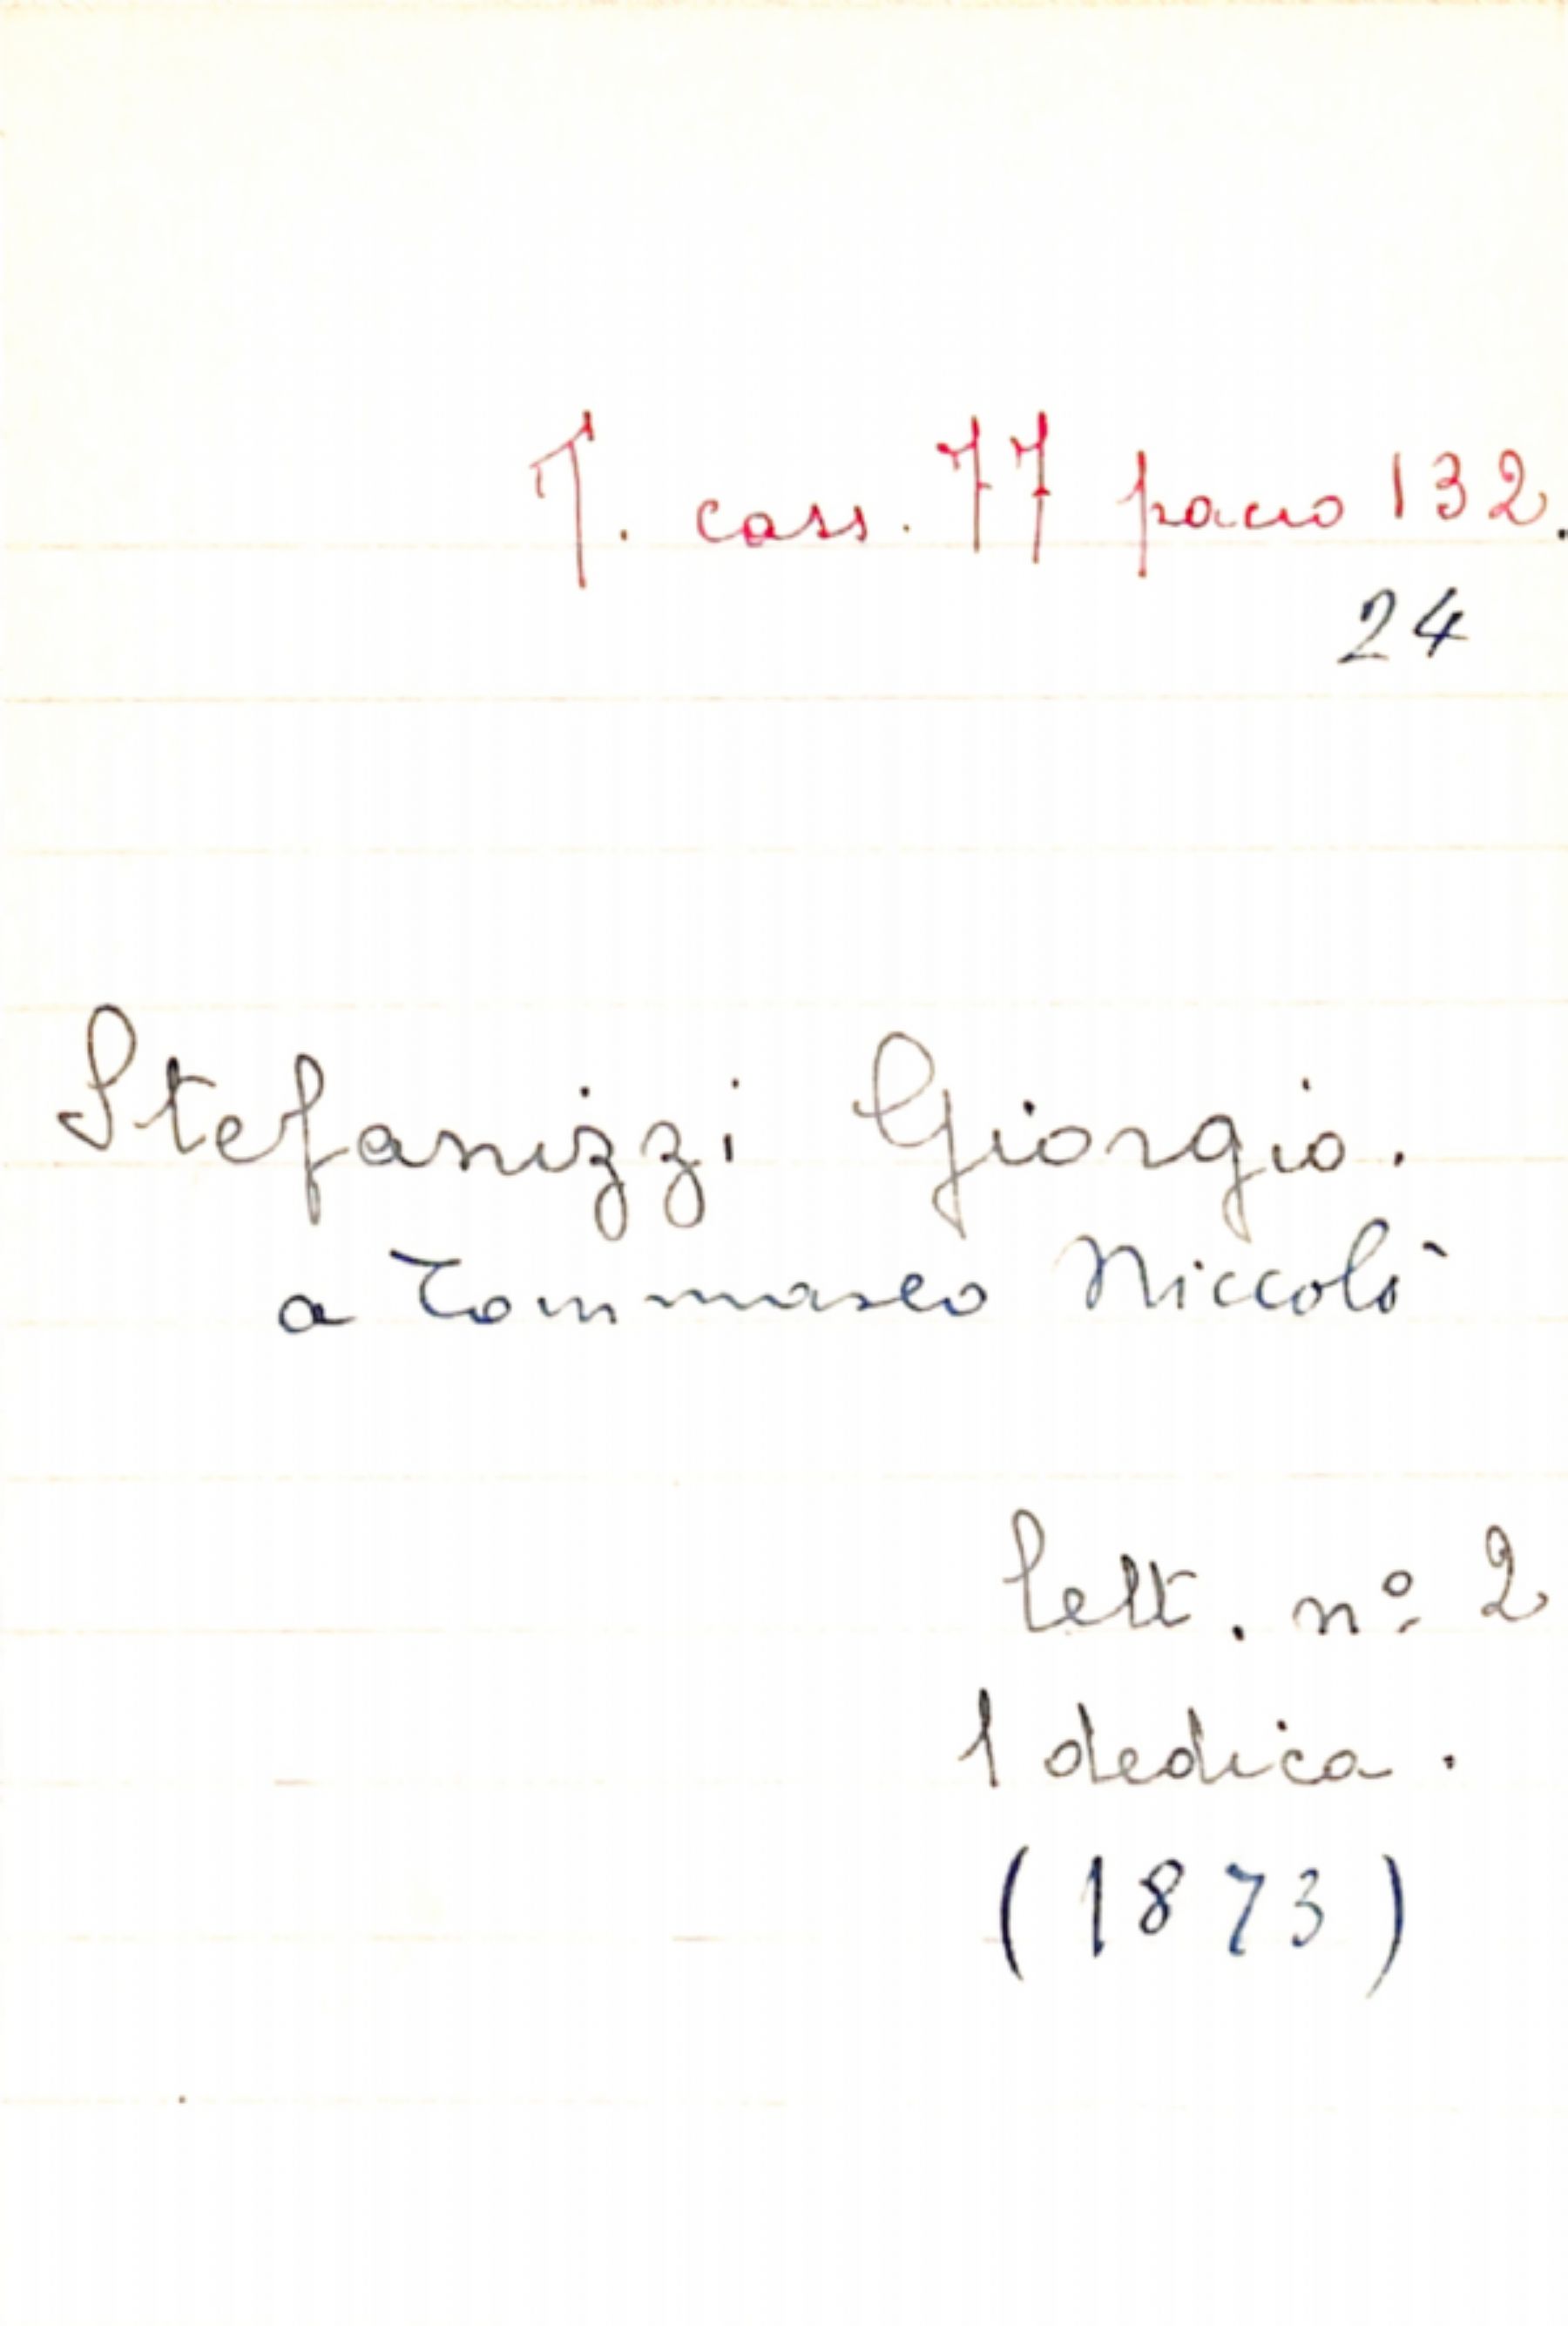 T. cass. 77 pacco 132.
24
Stefanizzi Giorgio.
a Tommaseo Niccolò
lett. nº 2
1 dedica.
(1873)